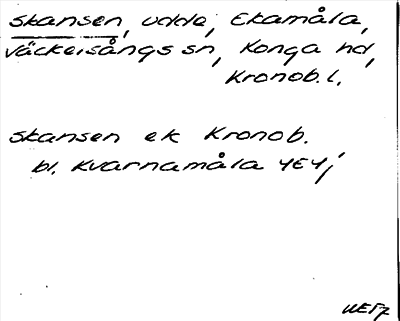 Skansen, udde, Ekamåla,
Väckelsångs sn, Konga hd,
Kronob. l.
Skansen ek Kronob.
bl. Kvarnamåla 4E4j